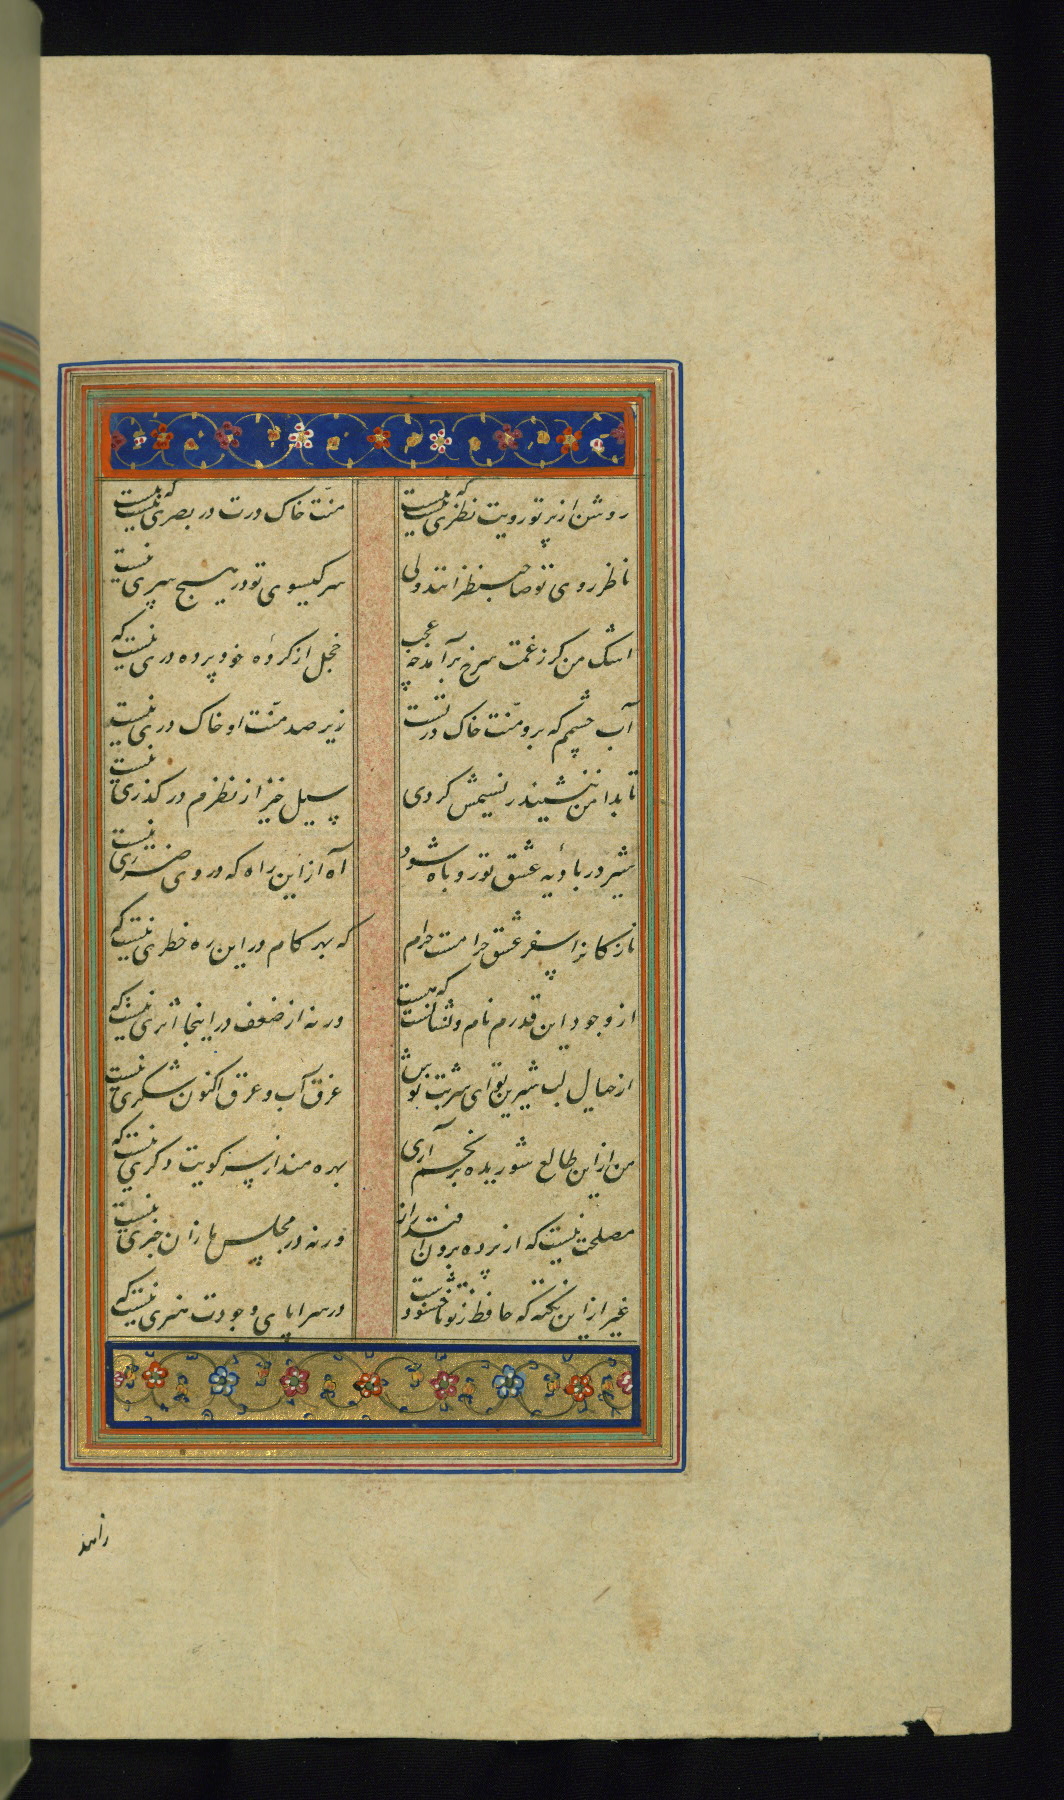 روشن از پرتو رویت نظری نیست که نیست منّت خاک درت در بصری نیست که نیست
ناظر روی تو صاحبنظرانند ولی سر گیسوی تو در هیچ سری نیست
اشک من گر ز غمت سرخ برآمد چه عجب خجل از کرده خود پرده دری نیست که
آب چشمم که برو منّت خاک در تست زیر صد منّت او خاک دری نیست
تا بدامن ننشیند ز نسیمش گردی سیل خیز از نظرم در گذری نیست
شیر در بادیه عشق تو روباه شود آه از این راه که در وی ضرری نیست
نازکانرا سفر عشق حرامست حرام که بهر کام در این ره خطری نیست که
از وجود این قدرم نام و نشانست که هست ورنه از ضعف در اینجا اثری نیست که
از خیال لب شیرین تو ای شربت نوش غرق آب و عرق اکنون شکری نیست
من از این طالع شوریده برنجم آری بهره مند از سر کویت دگری نیست که
مصلحت نیست که از پرده برون افتد راز ورنه در مجلس رازان خبری نیست
غیر از این نکته که حافظ ز تو ناخشنودست در سراپای وجودت هنری نیست که
زاهد